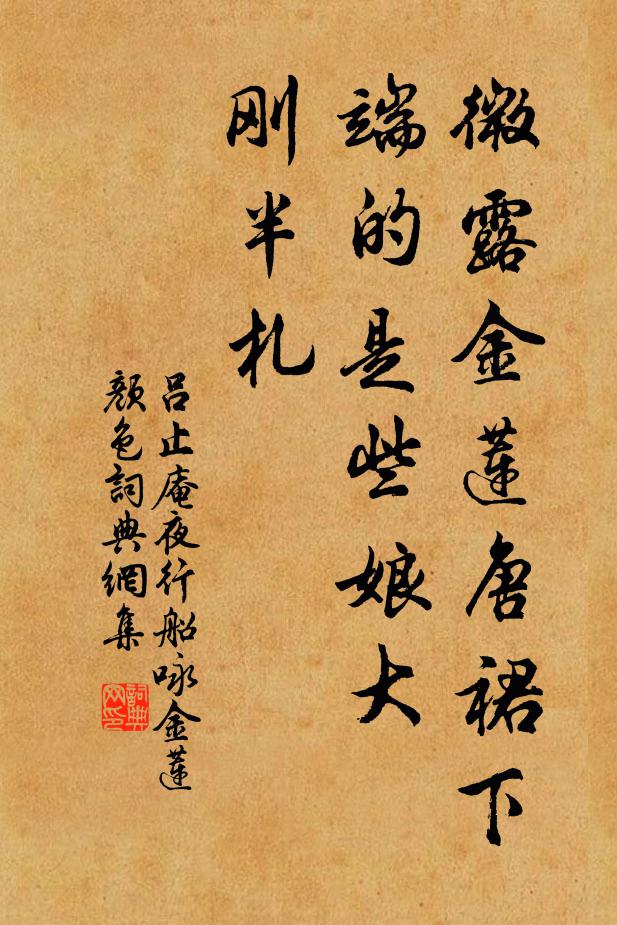 微露金蓮唐裙下
端的是些娘大
刚半札
吕止庵夜行船咏金蓮
颜色詞典網集
詞典
网印